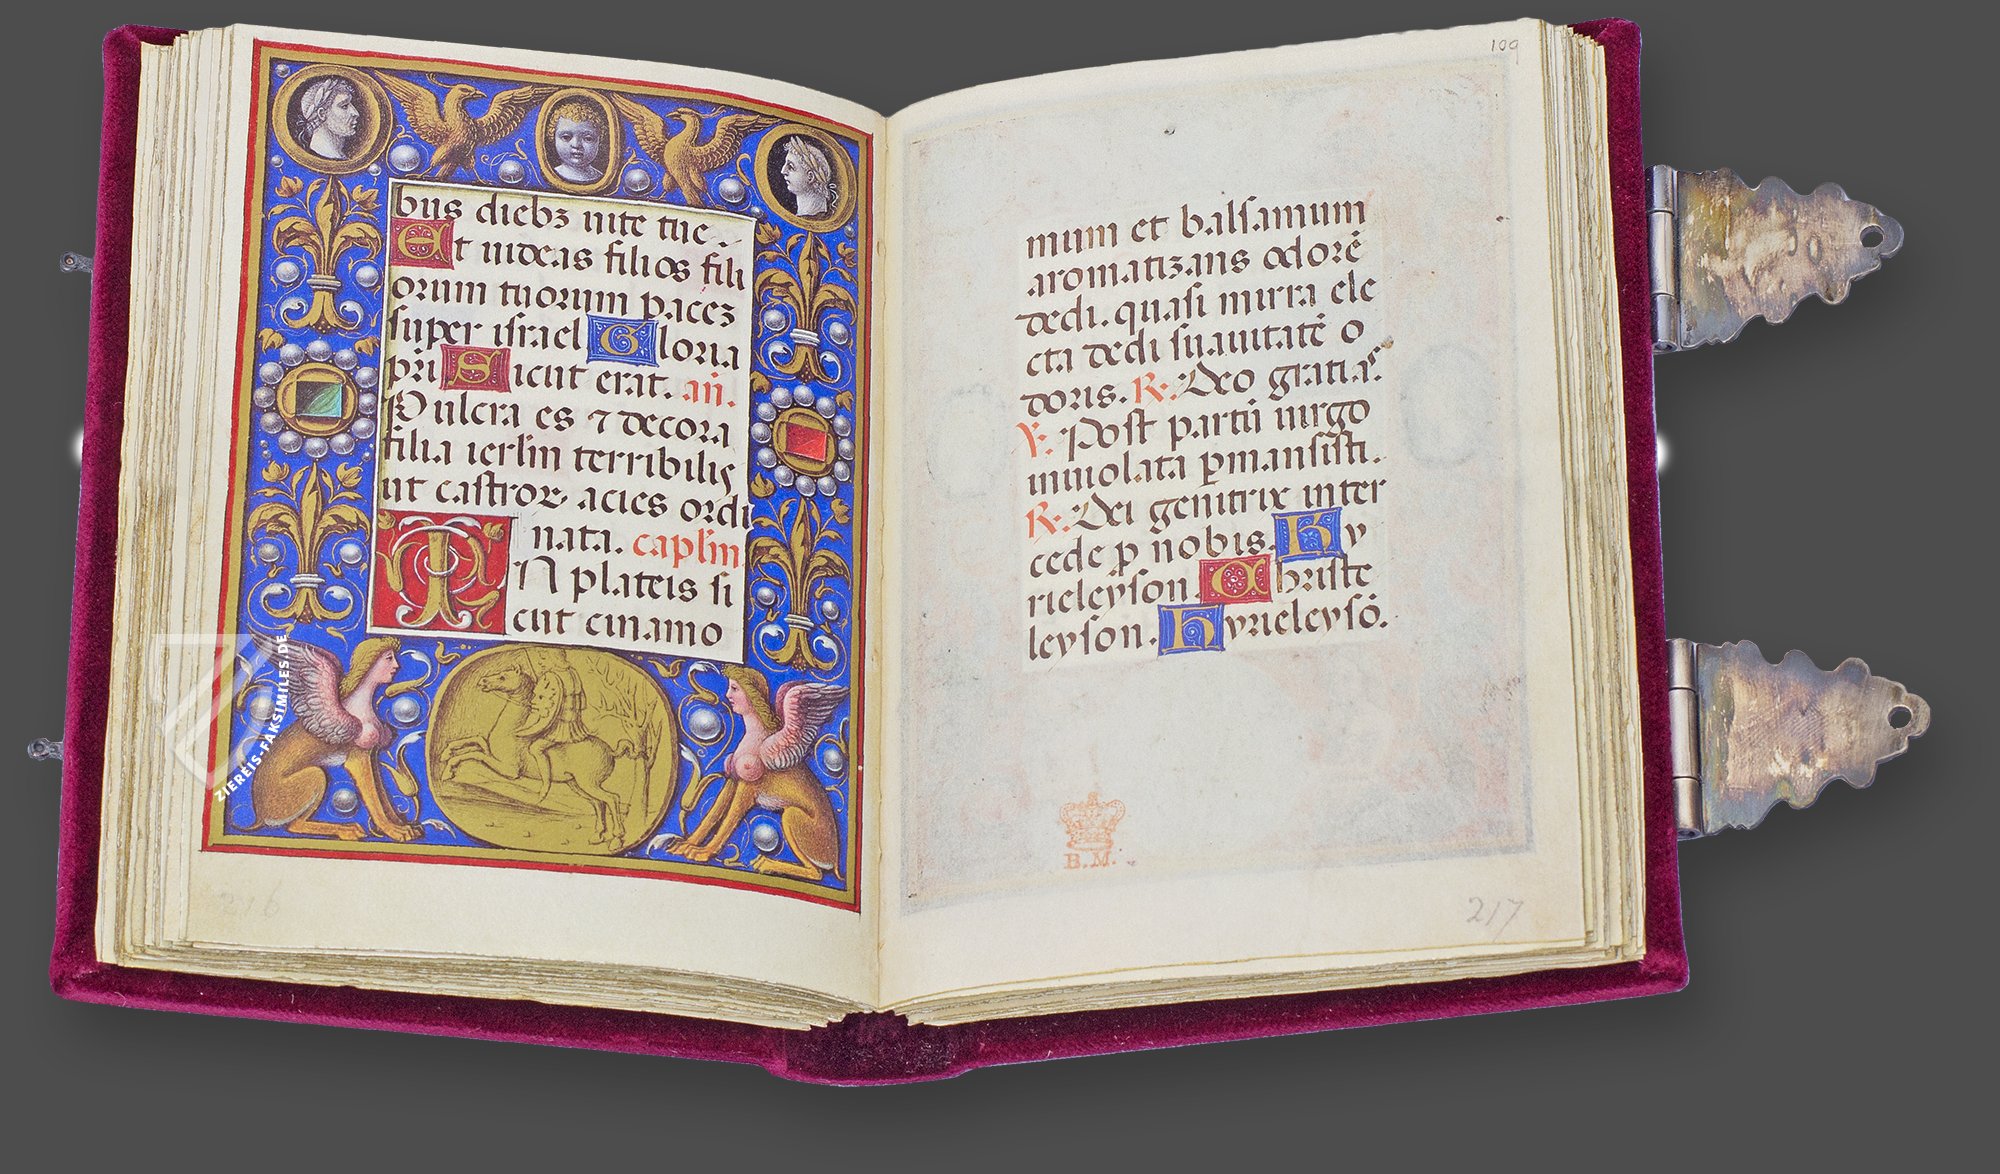 bus dieb3 uite tue.
Et uideas filios fili
orum tuorum pace3
super israel Gloria
pri Sicut erat. añ.
Pulcra es ⁊ decora
filia ierlm terribilis
ut castroꝝ acies ordi
nata. caplm
IN plateis si
cut cinamo
ZIEREIS-FAKSIMILES.DE
216
109
mum et balsamum
aromatizans odorē
dedi. quasi mirra ele
cta dedi suauitatē o
doris. R. Deo gratias.
V. Post partū uirgo
inuiolata ꝑmansisti.
R. Dei genitrix inter
cede ꝓ nobis. Ky
rieleyson. Christe
leyson. Kyrieleysō.
B.M.
217